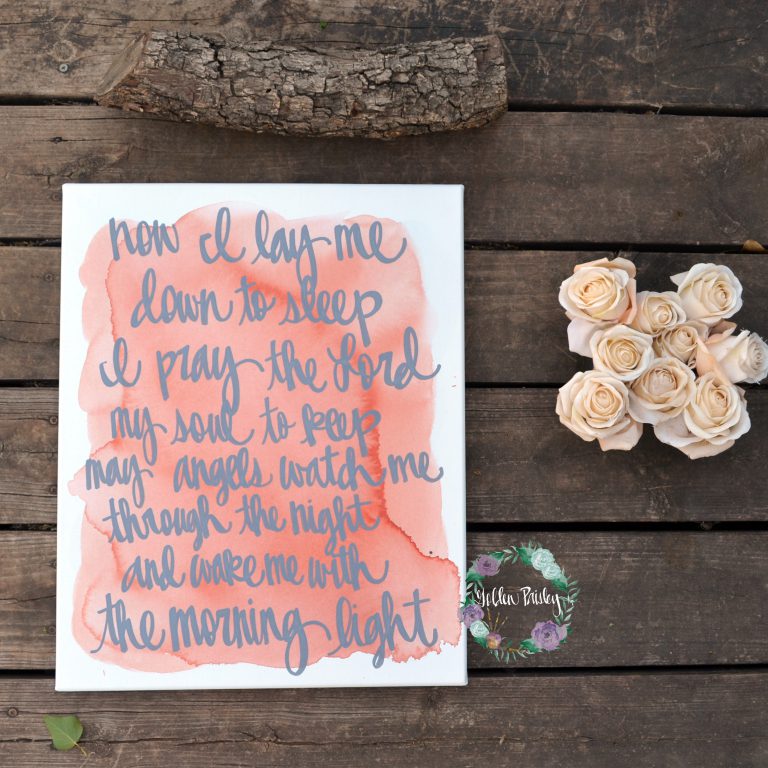 now I lay me
down to sleep
I pray the Lord
my soul to keep
may angels watch me
through the night
and wake me with
the morning light
Golden Paisley